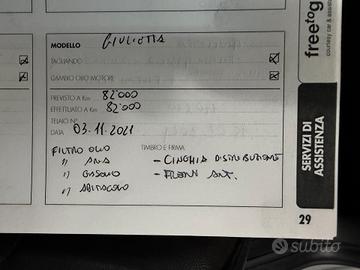 MODELLO GIULIETTA
TAGLIANDO
CAMBIO OLIO MOTORE
PREVISTO A Km 82'000
EFFETTUATO A Km 82'000
TELAIO N°
DATA 03.11.2021
FILTRO OLIO TIMBRO E FIRMA
" ARIA - CINGHIA DISTRIBUZIONE
" GASOLIO - FRENI ANT.
" ABITACOLO
freetog
courtesy car & assista
SERVIZI DI
ASSISTENZA
29
subito